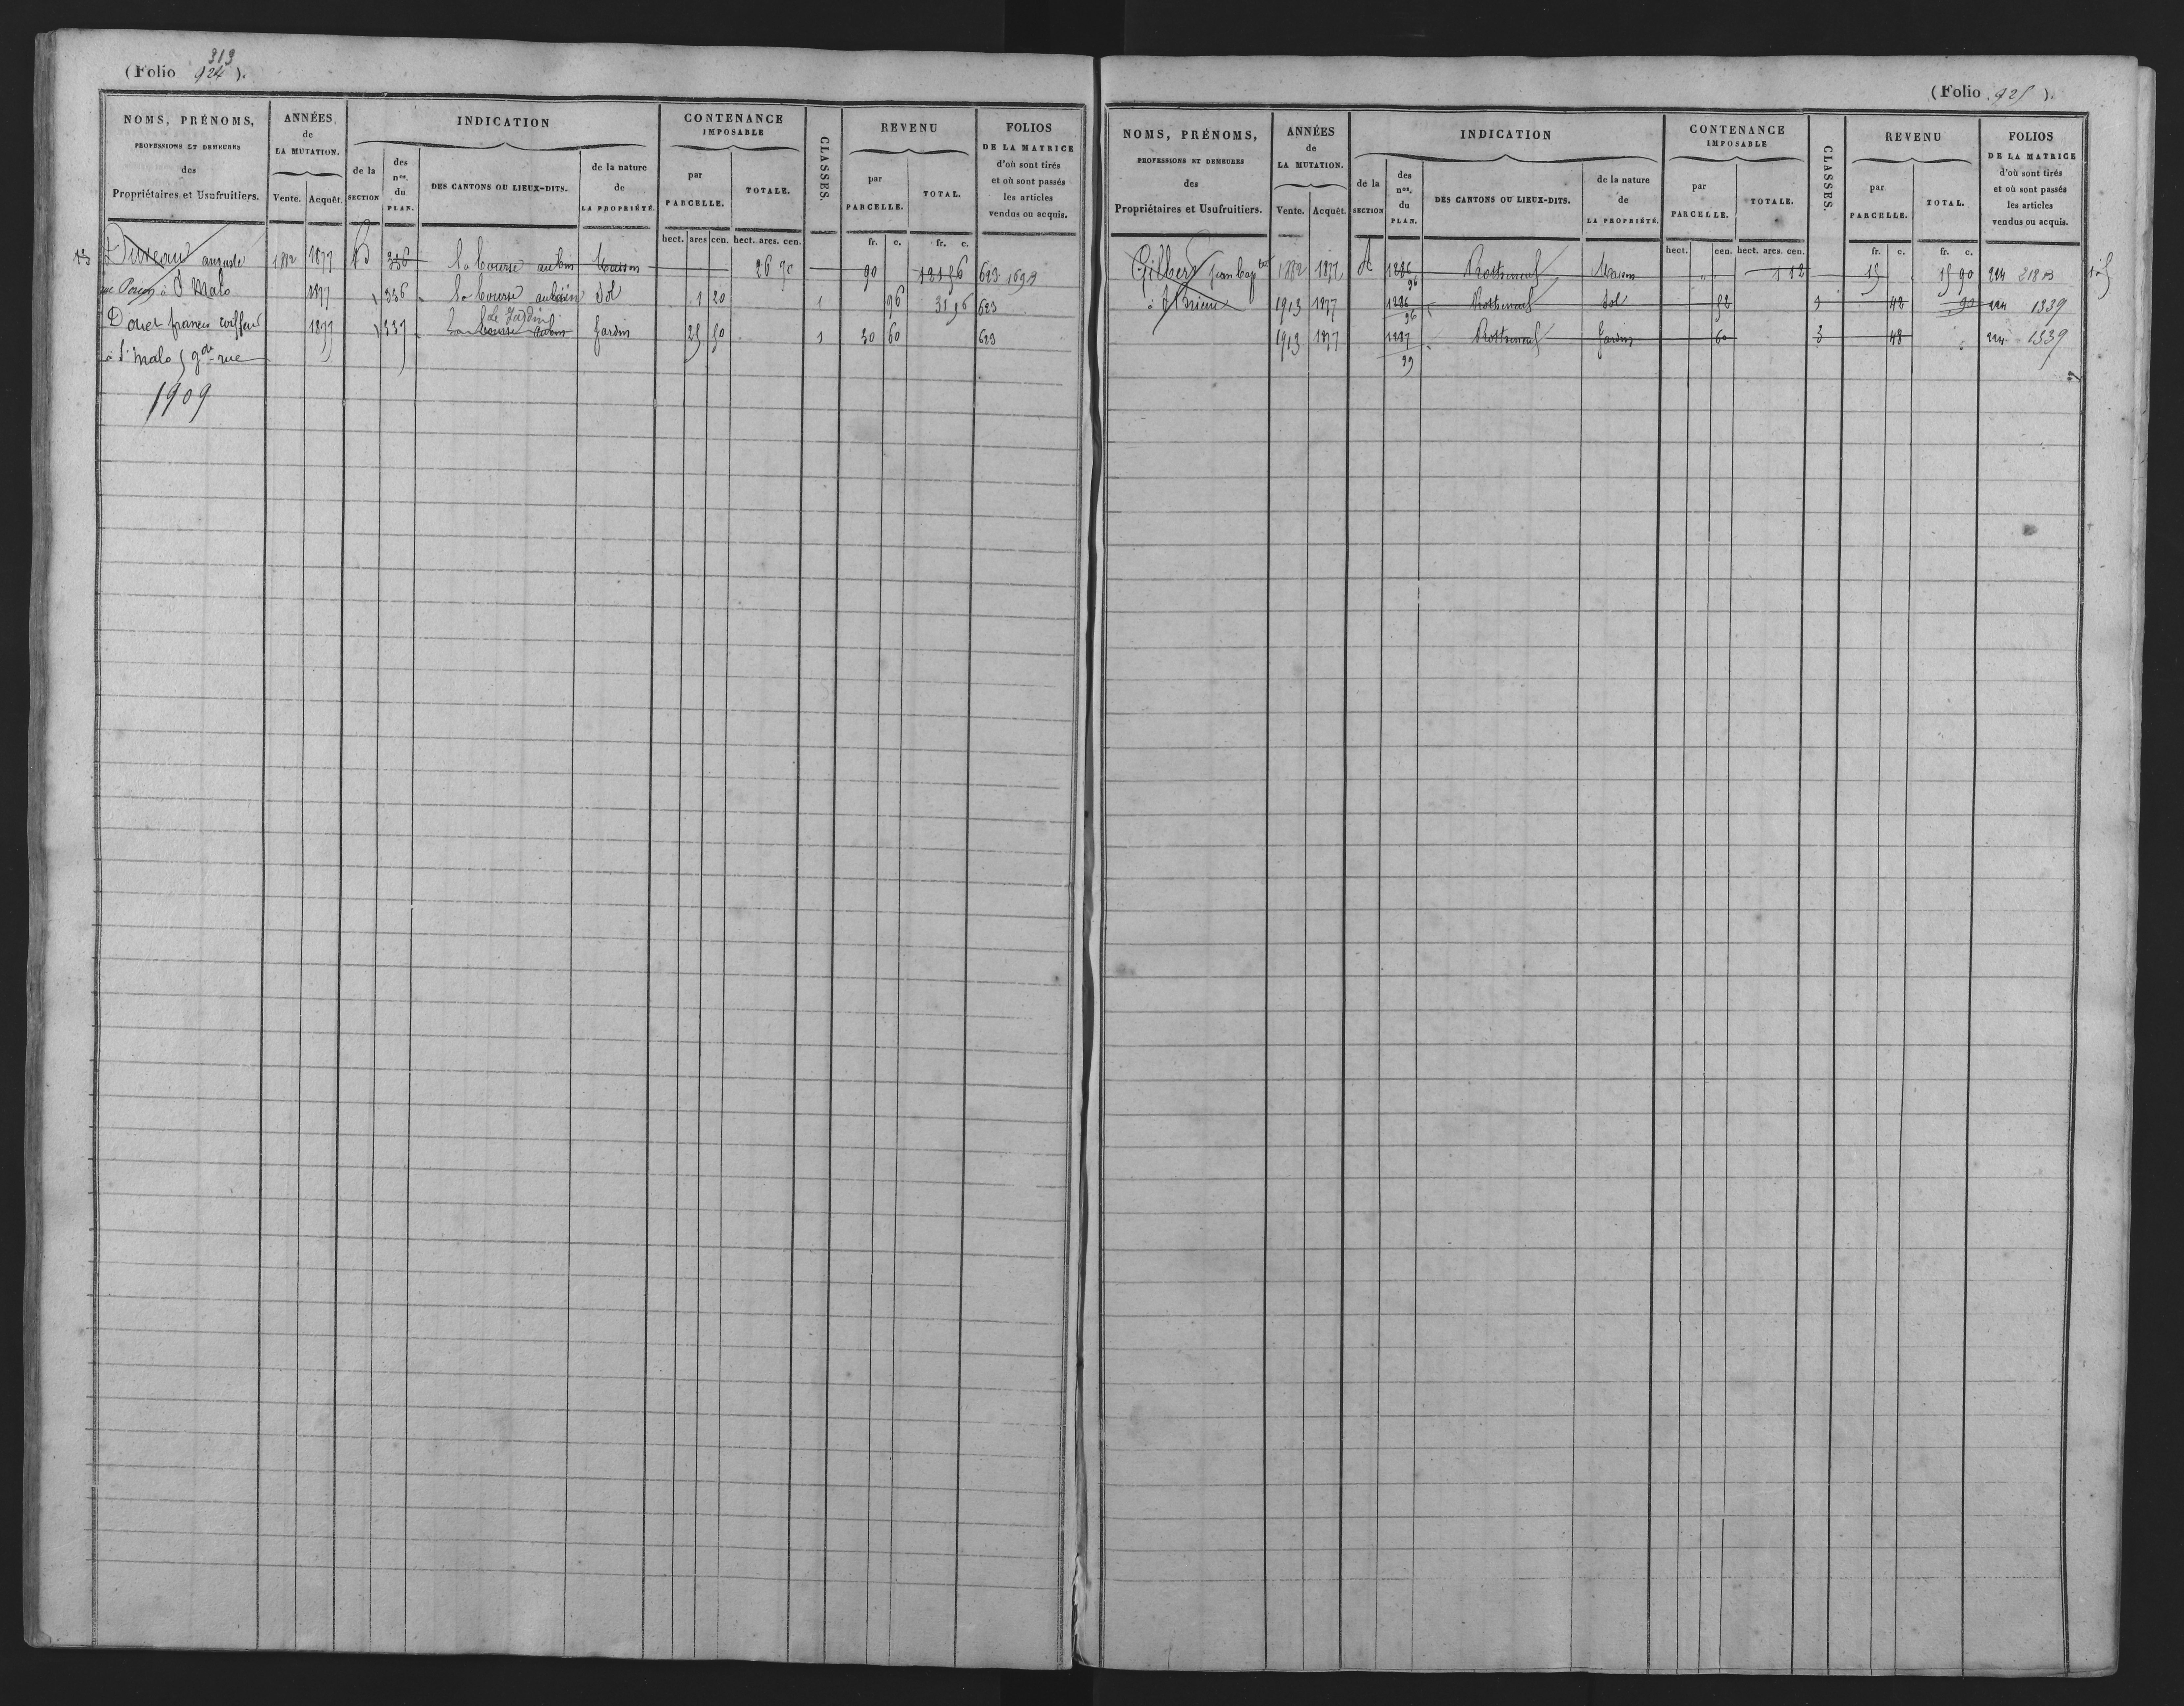 313
(Folio 924 ).
NOMS, PRÉNOMS,
PROFESSIONS ET DEMEURES
des
Propriétaires et Usufruitiers.
ANNÉES
de
LA MUTATION.
Vente. Acquêt.
INDICATION
de la
SECTION
des
nos.
du
PLAN.
DES CANTONS OU LIEUX-DITS.
de la nature
de
LA PROPRIÉTÉ.
CONTENANCE
IMPOSABLE
par
PARCELLE.
TOTALE.
hect. ares cen. hect. ares. cen.
CLASSES.
REVENU
par
PARCELLE.
TOTAL.
fr. c. fr. c.
FOLIOS
DE LA MATRICE
d'où sont tirés
et où sont passés
les articles
vendus ou acquis.
auguste 1882 1877 336 La bourse aubin Maison 26 70 90 121 56 623
à St Malo 1877 336 La bourse Sol 1 20 1 96 31 56 623
Le Jardin
Douet francis coiffeur 1877 337 La bourse aubin Jardin 25 50 1 30 60 623
à St Malo 5 gde rue
1909
(Folio 925 ).
NOMS, PRÉNOMS,
PROFESSIONS ET DEMEURES
des
Propriétaires et Usufruitiers.
ANNÉES
de
LA MUTATION.
Vente. Acquêt.
INDICATION
de la
SECTION
des
nos.
du
PLAN.
DES CANTONS OU LIEUX-DITS.
de la nature
de
LA PROPRIÉTÉ.
CONTENANCE
IMPOSABLE
par
PARCELLE.
TOTALE.
hect. cen. hect. ares. cen.
CLASSES.
REVENU
par
PARCELLE.
TOTAL.
fr. c. fr. c.
FOLIOS
DE LA MATRICE
d'où sont tirés
et où sont passés
les articles
vendus ou acquis.
Gilbert Jean Bapte 1882 1877 1286 Rotheneuf Maison 1 12 15 15 90 224
96
à St Brieuc 1913 1877 1286 Rotheneuf Sol 52 42 90 224 1339
96
1913 1877 1287 Rotheneuf Jardin 60 3 48 224 1339